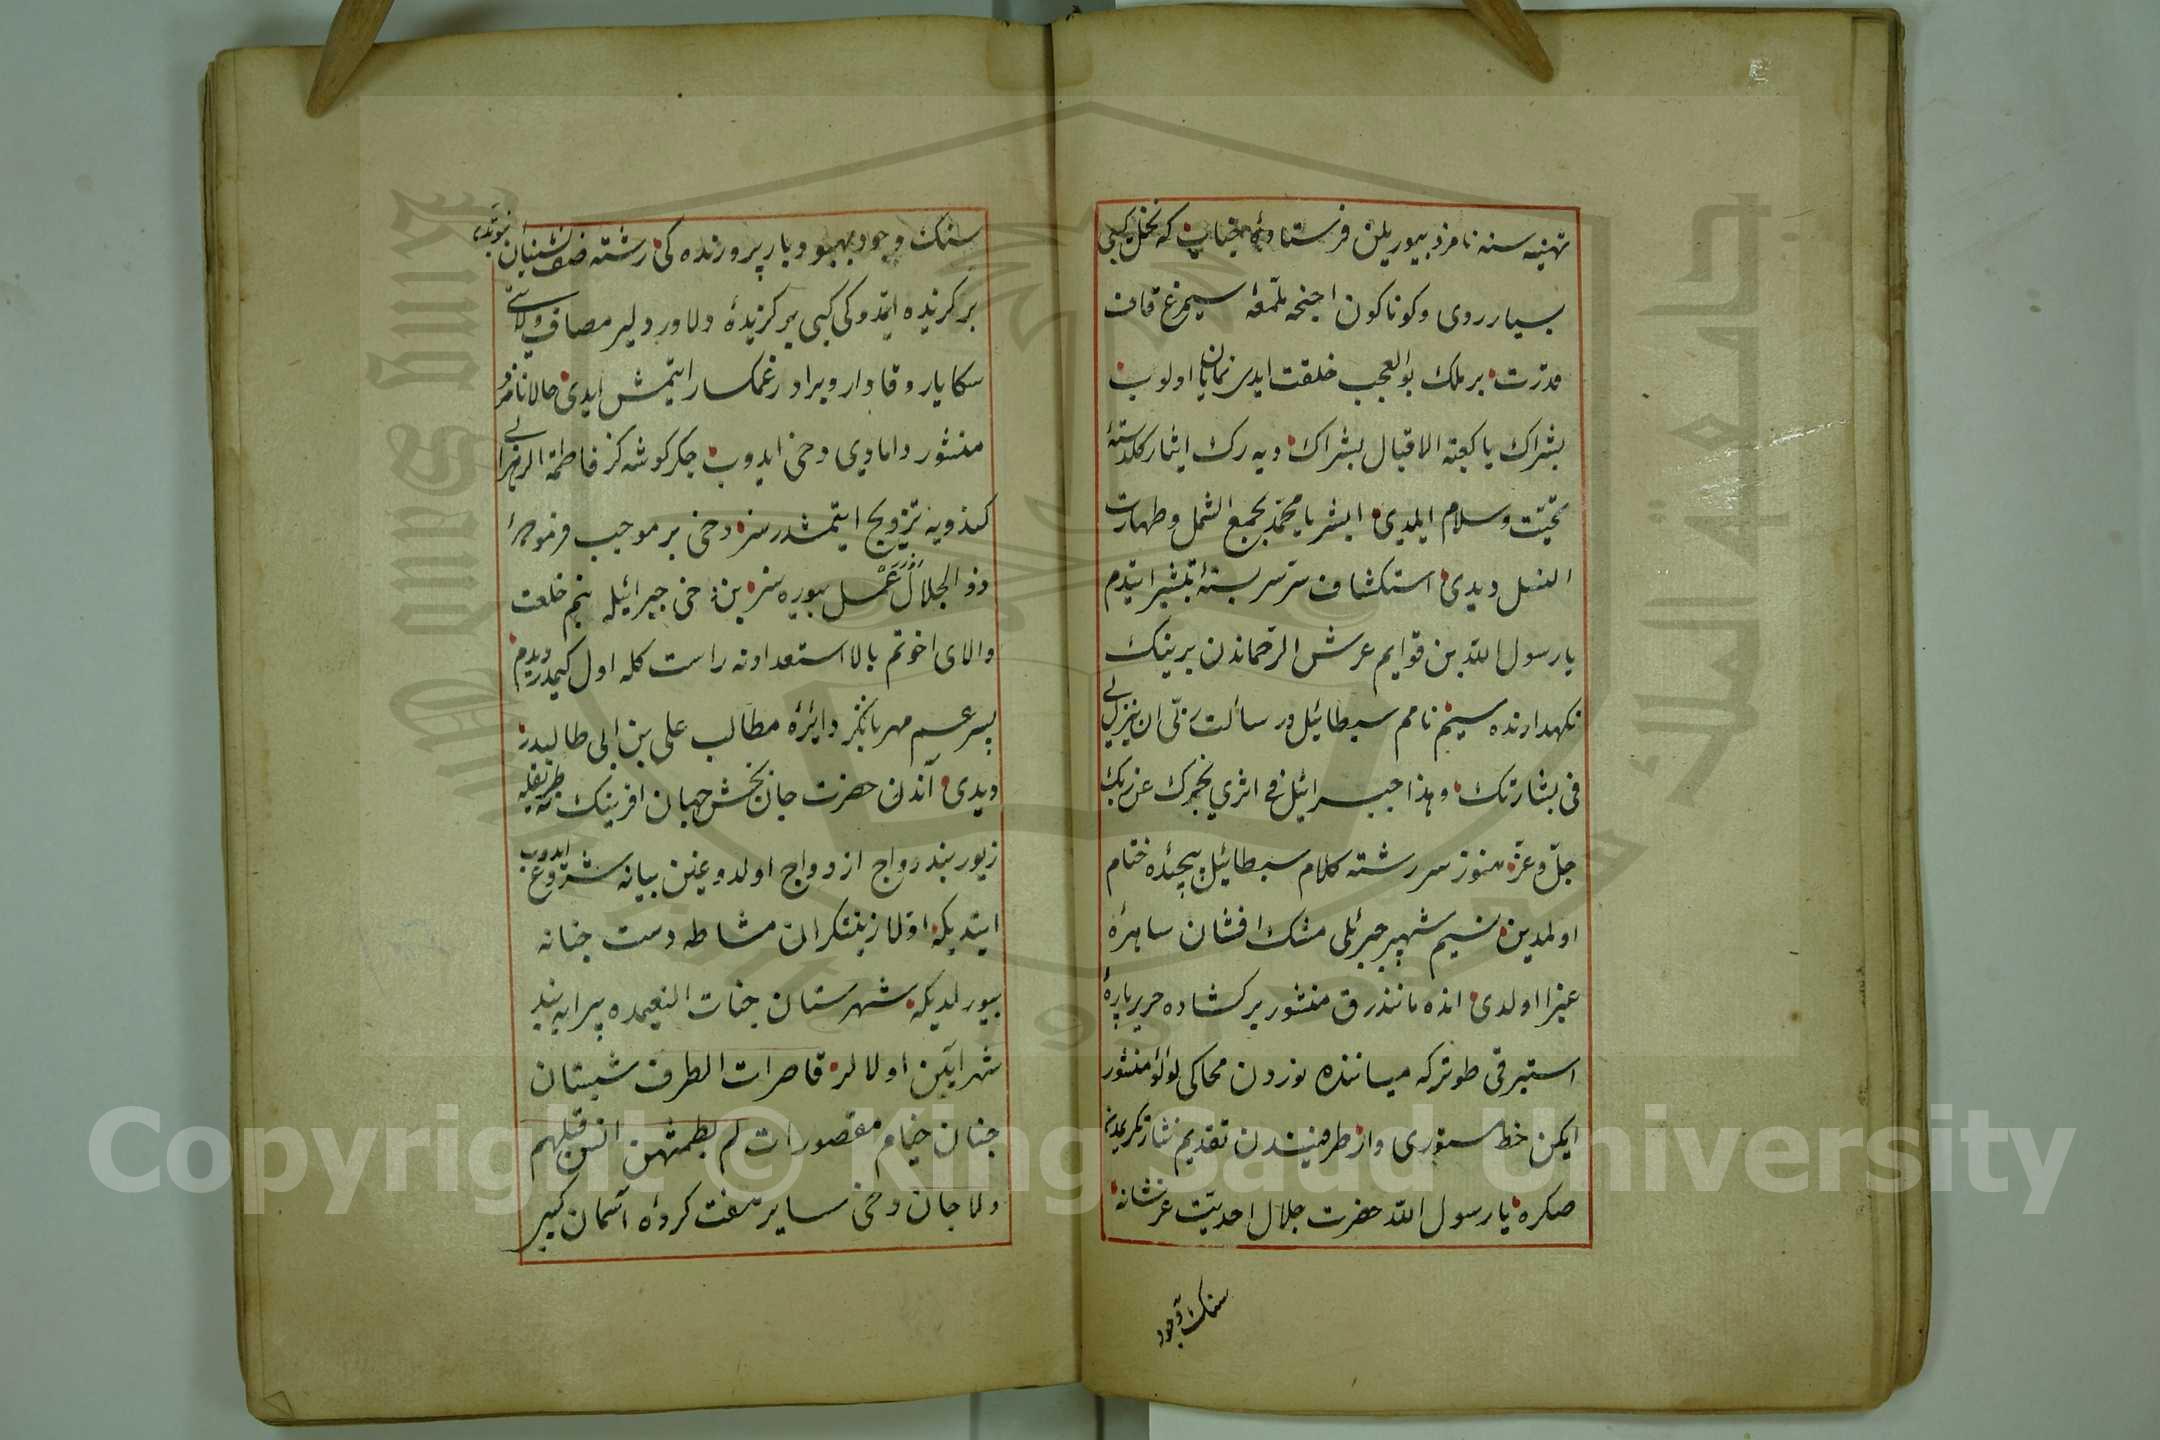 تهنیه سنه نامزد بیوریلن فرستاده جناب که نخل کبی
بسیار روی و کوناکون اجنحه ملمعهٔ سیمرغ قاف
قدرت بر ملک بوالعجب خلقت ایدی نمایان اولوب
بشراک یا کعبة الاقبال بشراک دیه رک ایثار کلدستهٔ
تحیت و سلام ایلدی ابشر یا محمد بجمع الشمل و طهارت
النسل دیدی استکشاف سر سربستهٔ تبشیر ایتدم
یا رسول الله بن قوایم عرش الرحماندن برینک
نکهدارنده سیم نامم سبطائیلدر سألت ربی ان ینزلنی
فی بشارتک وهذا جبرائیل فی اثری یخبرک عن ربک
جل وعز هنوز سر رشته کلام سبطائیل پیچیدهٔ ختام
اولمدین نسیم شهپر جبرئلی مشک افشان ساهرهٔ
غبرا اولدی انده مانند رق منشور بر کشاده حریر پارهٔ
استبرقی طوترکه میاننده نوردن محاکی لؤلؤ منثور
ایکن خط ستوری وار طرفیندن تقدیم نثار تکریمدن
صکره یا رسول الله حضرت جلال احدیت عز شانه
سنک وجود
سنک وجود بهبود بار پرورنده کی رشته صف نشینان نبوتدن
بر کزیده ایتدوکی کبی بر کزیدهٔ دلاور دلیر مصاف ولایتی
سکا یار وفادار و برادر غمکسار ایتمش ایدی حالا نامزد
منشور دامادی دخی ایدوب جکر کوشه کز فاطمة الزهرایی
کندویه تزویج ایتمشدر سز دخی بر موجب فرمودهٔ
ذو الجلال عمل بیوره سز بن دخی جبرائیله بنم خلعت
والای اخوتم بالا استعدادنه راست کله اول کیمدر دیدم
پسر عم مهربانکز دایرهٔ مطالب علی بن ابی طالبدر
دیدی آندن حضرت جان بخش جهان آفرینک نه طریقله
زیور بند رواج ازدواج اولدوغین بیانه شروع ایدوب
ایتدیکه اولا زینتکران مشاطه دست جنانه
بیورلدیکه شهرستان جنات النعیمده پیرایه بند
شهر آیین اولالر قاصرات الطرف شبستان
جنان خیام مقصورات لم یطمثهن انس قبلهم
ولا جان دخی سایر هفت کردهٔ آسمان کبیر